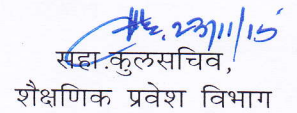 23/11/15
सहा.कुलसचिव,
शैक्षणिक प्रवेश विभाग